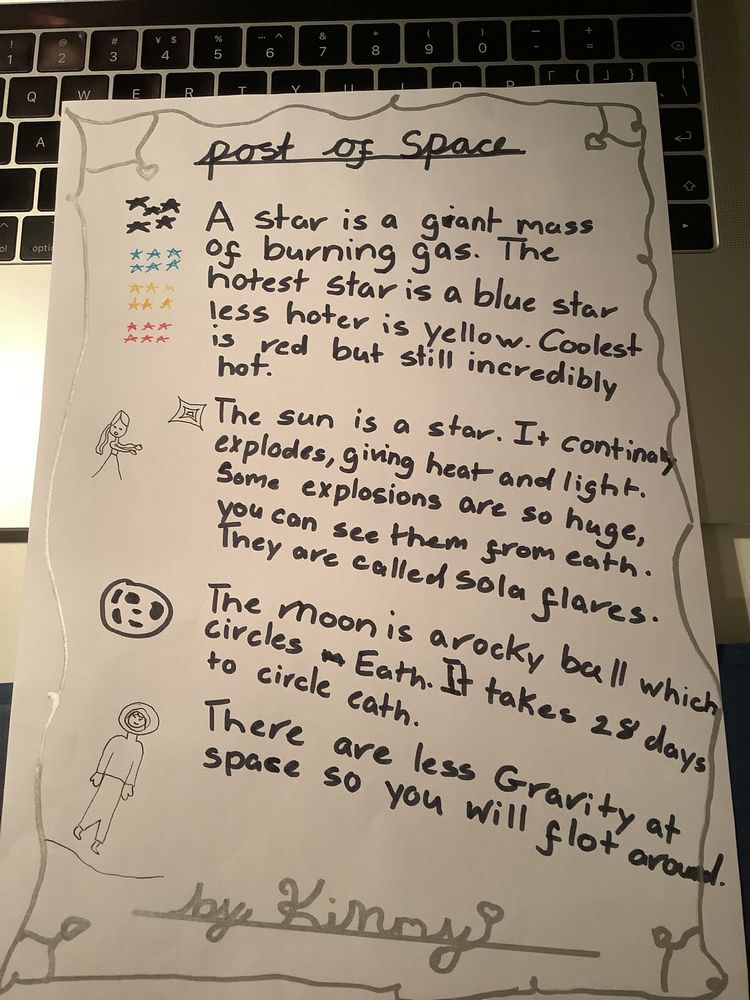 ! @ # ¥ $ % ^ & * ( ) - +
1 2 3 4 5 6 7 8 9 0 - =
Q W E R T Y U I O P
A
post of Space
A star is a giant mass
of burning gas. The
hotest star is a blue star
less hoter is yellow. Coolest
is red but still incredibly
hot.
The sun is a star. It continaly
explodes, giving heat and light.
Some explosions are so huge,
you can see them from eath.
They are called Sola flares.
The Moon is a rocky ball which
circles Eath. It takes 28 days
to circle eath.
There are less Gravity at
space so you will flot around.
by Kimmy